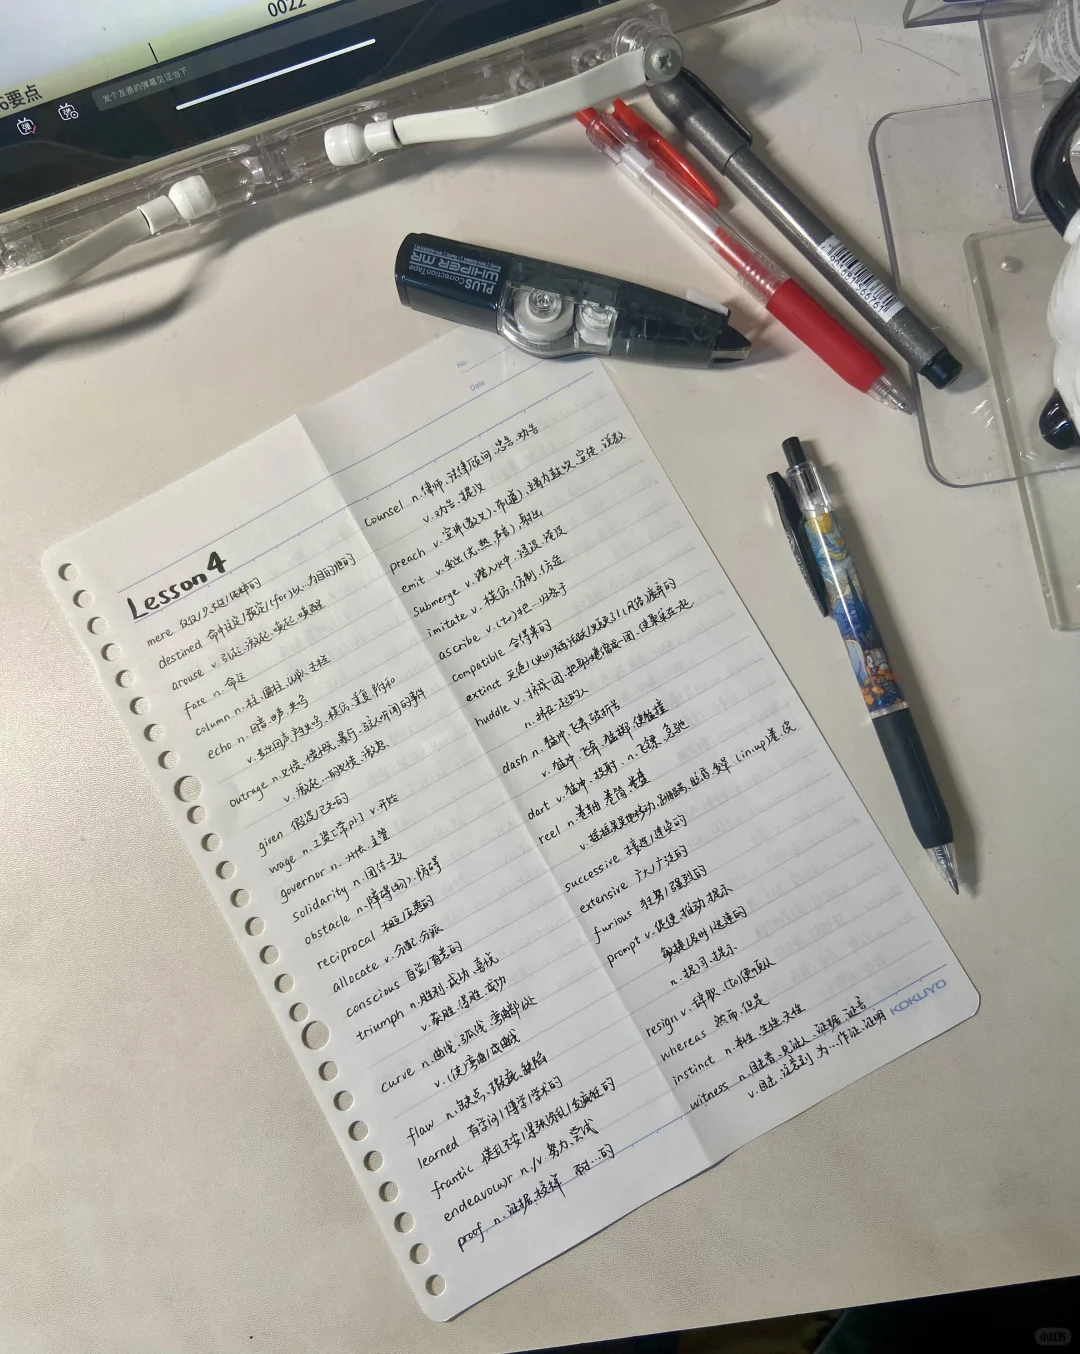 0022
6要点
发个友善的弹幕见证当下
弹
弹
PLUS
Correction Tape
WHIPER MR
No.
Date
Lesson 4
mere 仅仅/只不过/纯粹的
destined 命中注定/预定/(for)以…为目的地的
arouse v.引起.激起.唤起.唤醒
fate n.命运
column n.柱.圆柱
echo n.回音.回声.共鸣
v.发出回声.产生共鸣.模仿.重复.附和
outrage n.义愤.愤慨.暴行.骇人听闻的事件
v.激起…的义愤.激怒
given 假设/已知的
wage n.工资[常pl.] v.开始
governor n.州长.主管
solidarity n.团结一致
obstacle n.障碍(物).妨碍
reciprocal 相互/互惠的
allocate v.分配.分派
conscious 自觉/有意的
triumph n.胜利.成功.喜悦
v.获胜.得胜.成功
curve n.曲线.弧线.弯曲部分处
v.(使)弯曲/成曲线
flaw n.缺点.瑕疵.缺陷
learned 有学问/博学/学术的
frantic 慌乱不安/紧张忙乱/疯狂的
endeavo(u)r n./v.努力.尝试
proof n.证据.校样 耐…的
counsel n.律师.法律顾问.忠告.劝告
v.劝告.提议
preach v.宣讲(教义).布(道).竭力鼓吹.宣传.说教
emit v.发出(光.热.声音).射出
submerge v.潜入水中.浸没.淹没
imitate v.模仿.仿制.仿造
ascribe v.(to)把…归于
compatible 合得来的
extinct 灭绝/(火山)不再活跃/熄灭了/(风俗)废弃的
huddle v.挤成一团.把身子蜷缩成一团.使聚集在一起
n.挤在一起的人
dash n.猛冲.飞奔.破折号
v.猛冲.飞奔.猛掷.使猛撞
dart v.猛冲.投射. n.飞镖.急驰
reel n.卷轴.卷筒.卷盘
v.摇摇晃晃地移动.蹒跚.眩晕 (in.up)卷.绕
successive 接连/连续的
extensive 广大/广泛的
furious 狂怒/强烈的
prompt v.促使.推动.提示
敏捷/及时/迅速的
n.提词.提示
resign v.辞职.(to)使顺从
whereas 然而.但是
instinct n.本性.生性.天性
witness n.目击者.见证人.证据.证言
v.目击.注意到 为…作证.证明
KOKUYO
小红书